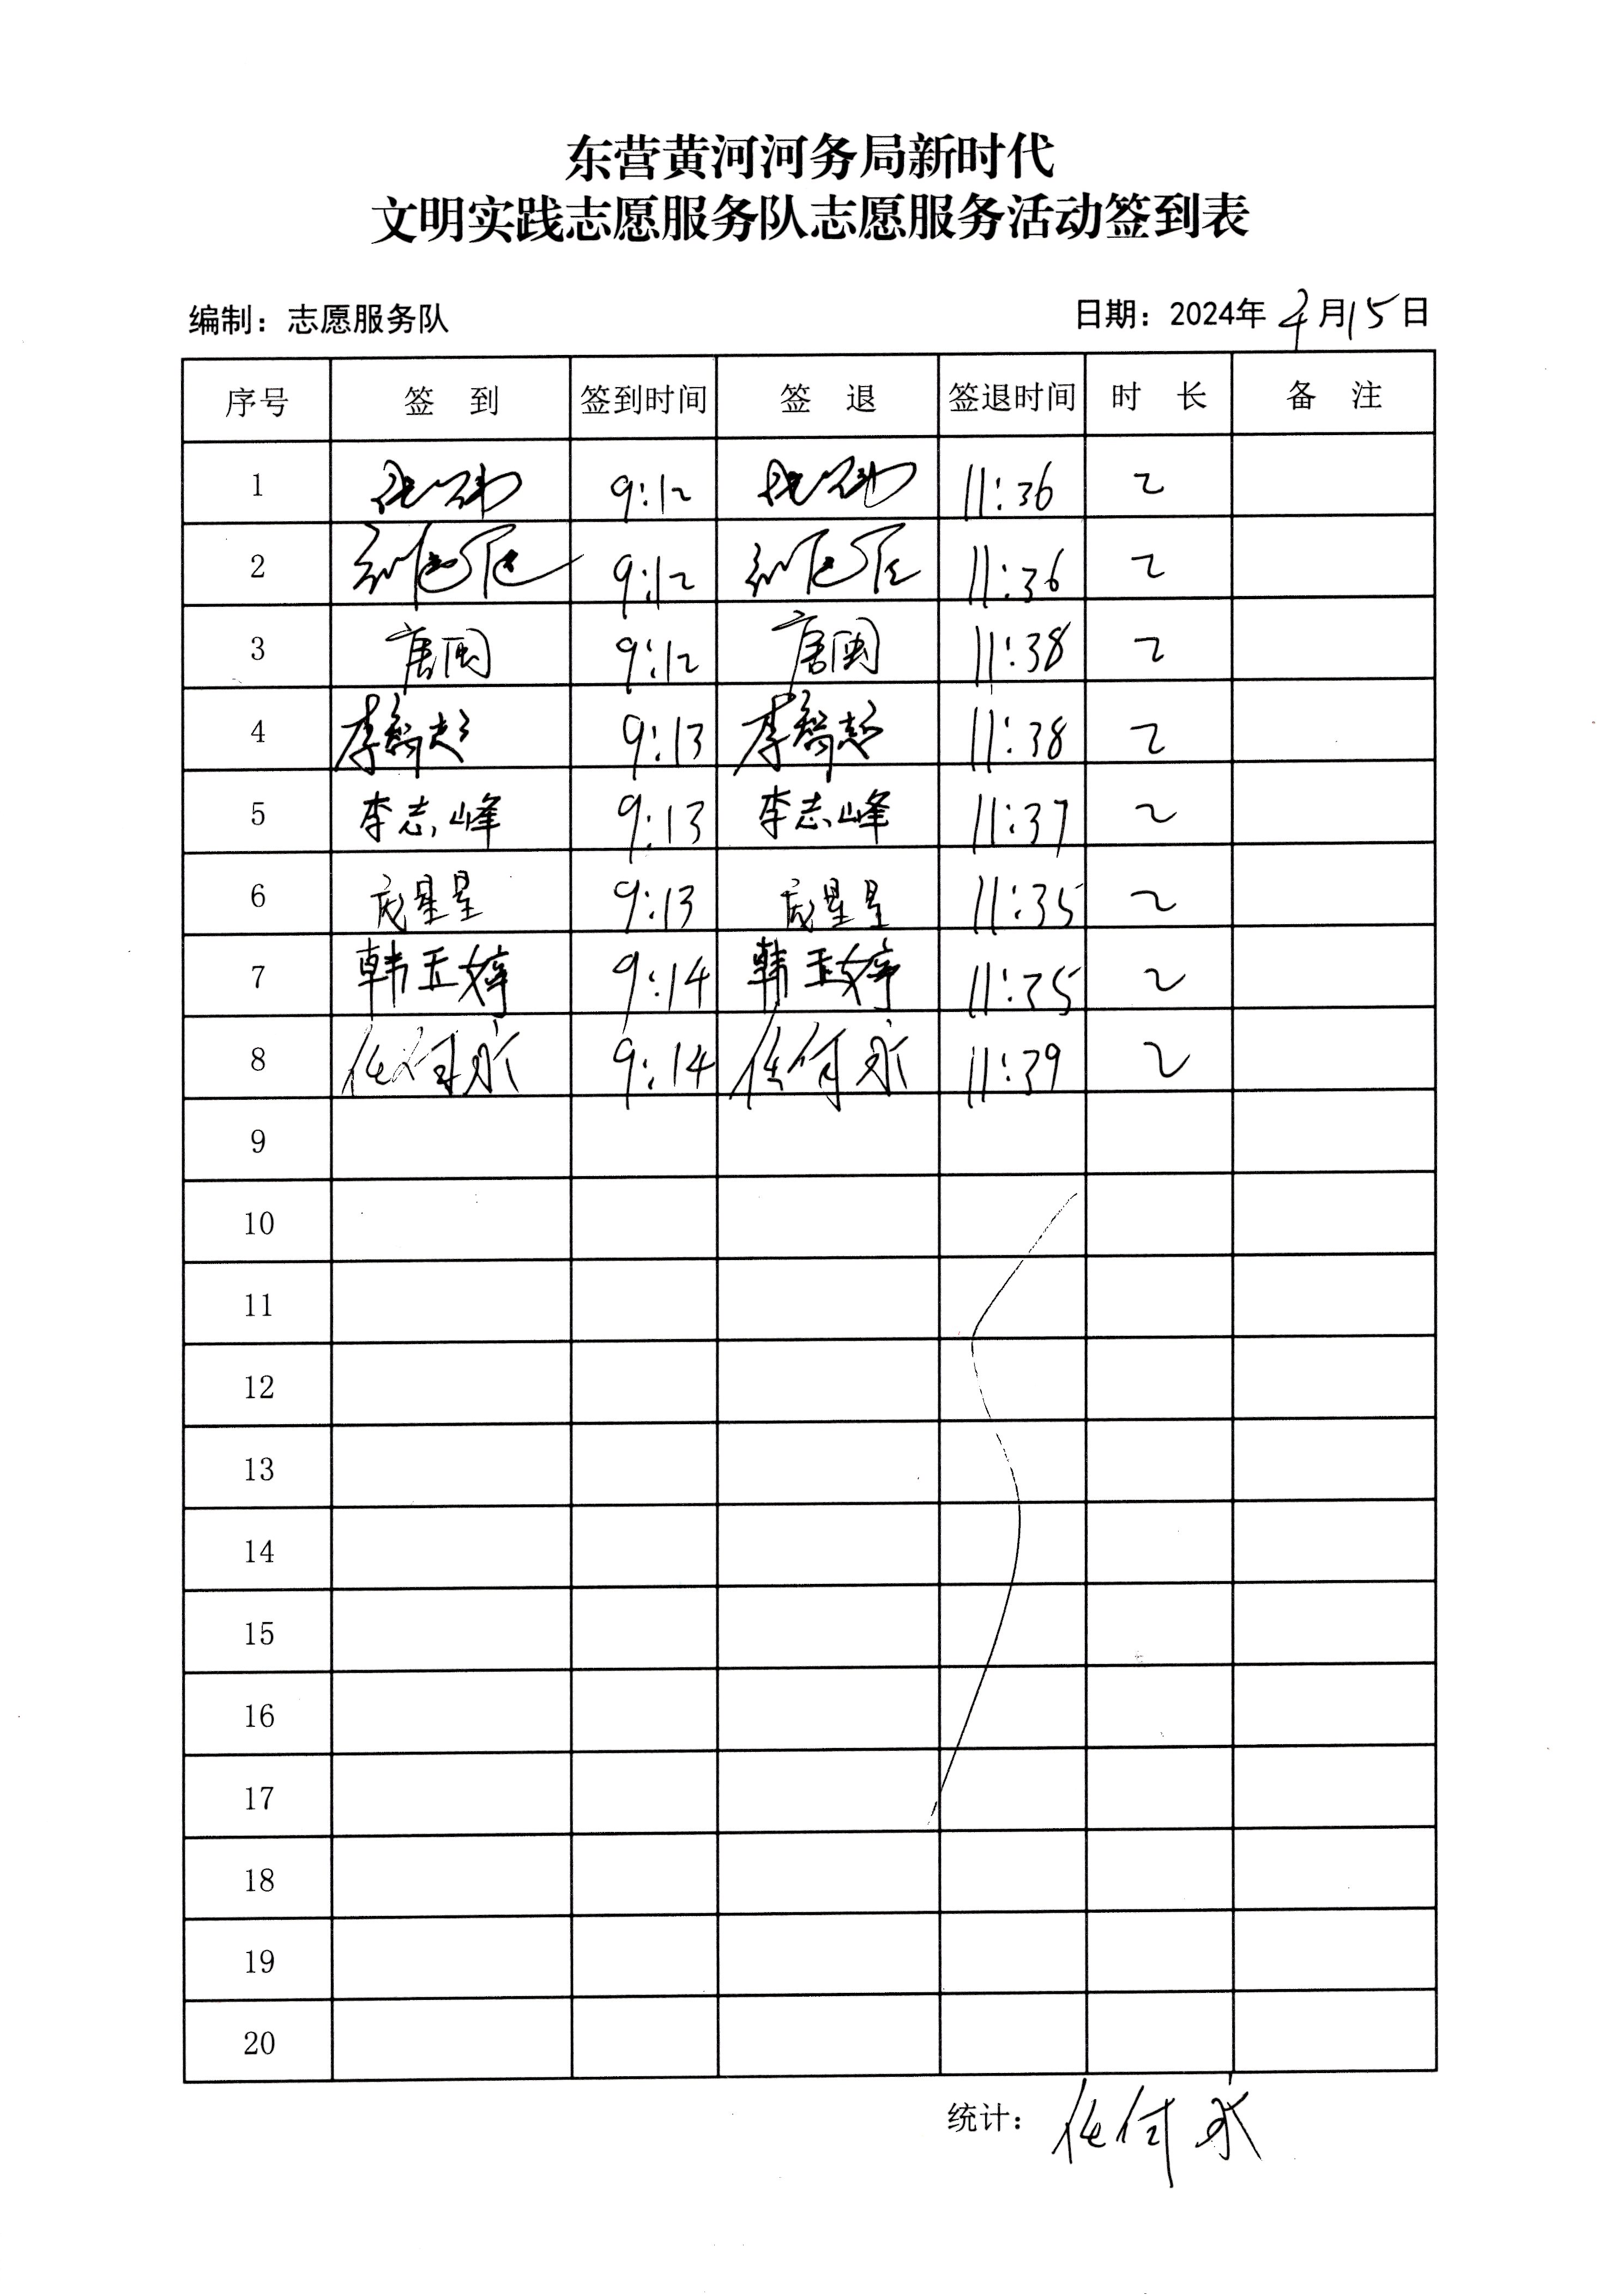 东营黄河河务局新时代
文明实践志愿服务队志愿服务活动签到表
编制：志愿服务队 日期：2024年 月15日
序号 签 到 签到时间 签 退 签退时间 时 长 备 注
1 9:12 11:36 2
2 9:12 11:36 2
3 唐国 9:12 唐国 11:38 2
4 李智超 9:13 李智超 11:38 2
5 李志峰 9:13 李志峰 11:37 2
6 庞星星 9:13 庞星星 11:35 2
7 韩玉婷 9:14 韩玉婷 11:35 2
8 任付永 9:14 任付永 11:39 2
9
10
11
12
13
14
15
16
17
18
19
20
统计： 任付永